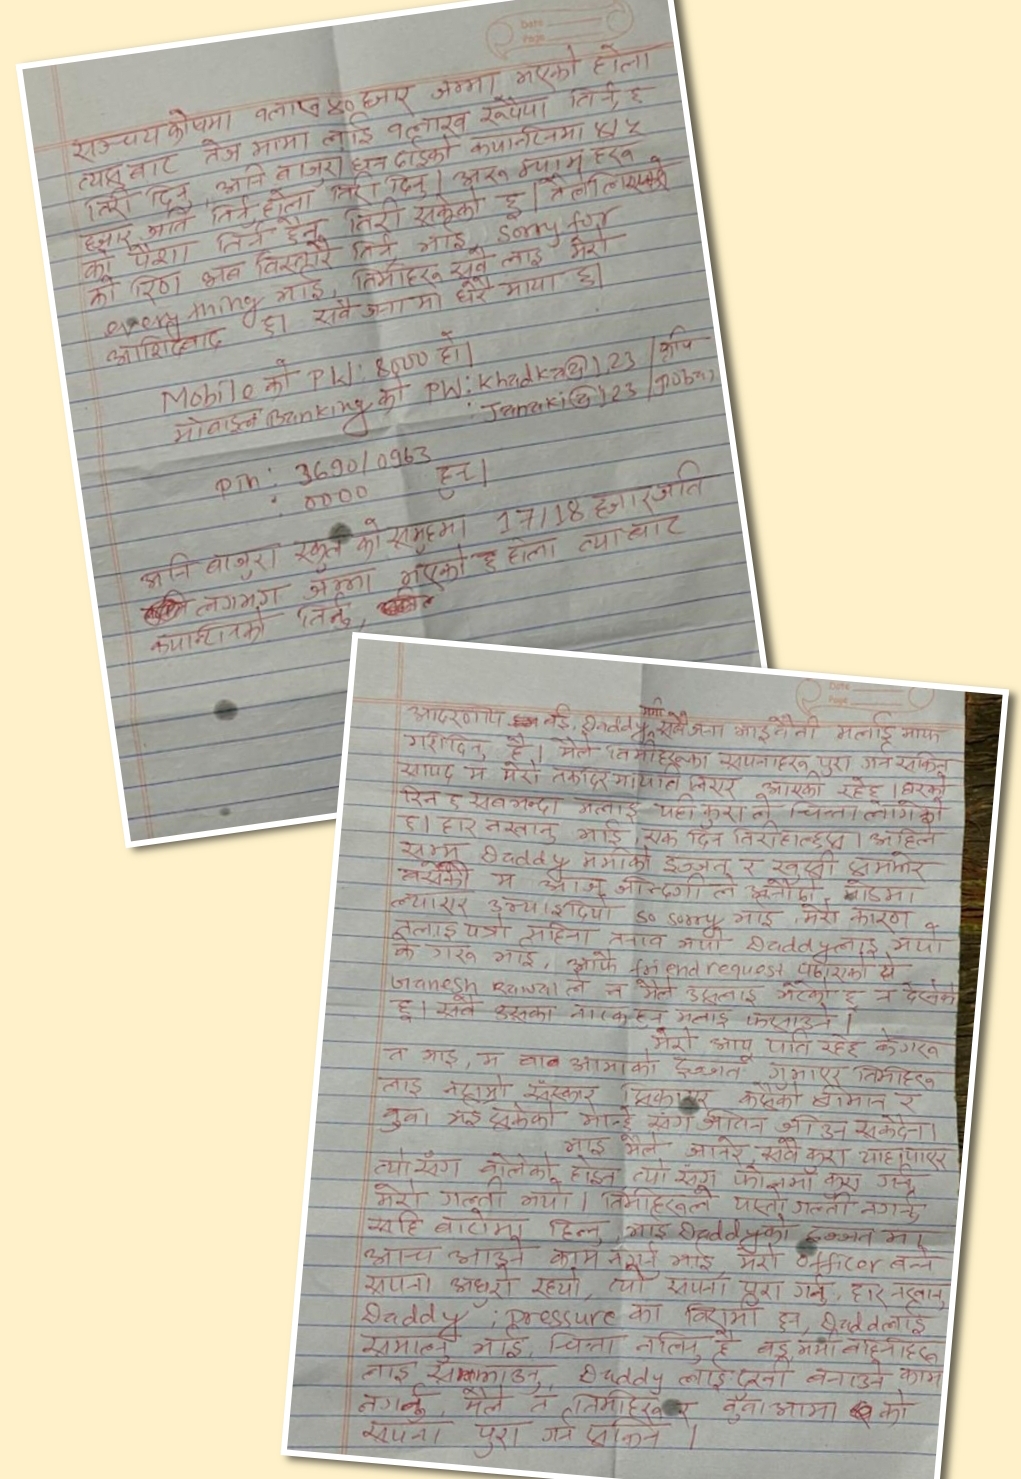 Date
Page
सञ्चय कोषमा १लाख ४० हजार जम्मा भएको होला
त्यस बाट तेज मामा लाई १लाख रूपैया तिर्नु छ
तिरी दिनु, अनि बाजुरा दाईको क्यान्टिनमा ४/५
हजार जति तिर्नु होला तिरी दिनु। अरू
को पैसा तिर्नु तिरी सकेको छु।
को रिण अब विस्तारै तिर्नु भाइ, sorry for
everything भाइ, तिमीहरू सबै लाई मेरो
आशिर्वाद छ। सबै जनामा धेरै माया छ।
Mobile को PW: 8000 हो।
मोवाइल Banking को PW: Khadka@123
: Janaki@123
PIN: 3690/0963
: 0000 हुन्।
अनि बाजुरा स्कुल को समूहमा 17/18 हजार जति
लगभग जम्मा भएको छ होला त्या बाट
क्यान्टिनको तिर्नु,
Date
Page
आदरणीय Daddy, ममी सबैजना भाइ बैनी मलाई माफ
गरिदिनु है। मैले तिमीहरूका सपनाहरू पुरा गर्न सकिन
सायद म मेरो तकदिरमा यति लिएर आएकी रहेछु। घरको
रिन छ सबभन्दा मलाई यही कुरा ले चिन्ता लागेको
छ। हार नखानु भाई एक दिन तिरीहाल्छस। अहिले
सम्म Daddy ममीको इज्जत र खुशी सम्झेर
बसेकी म आज जीन्दगी ले मोडमा
ल्याएर पुर्‍याइदियो so sorry भाई, मेरो कारण
तलाई पनी महिना तनाव भयो Daddy लाई भयो
के गरू भाई, आफै friend request पठाएको हो
Ganesh Rawal ले न मैले उसलाई भेटेको छु न देखेको
छु। सबै उसका नाटक हुन मलाई फसाउने।
मेरो आयु यति रहेछ के गरू
त भाइ, म बाबा आमाको इज्जत गुमाएर तिमीहरू
लाई नराम्रो संस्कार सिकाएर कसैको श्रीमान र
बुवा भई सकेको मान्छे संग जीवन जीउन सक्दिन।
भाइ मैले जानेर, सबै कुरा थाहा पाएर
त्यो सँग बोलेको होइन त्यो संग फोनमा कुरा गर्नु
मेरो गल्ती भयो। तिमीहरूले यस्तो गल्ती नगर्नु
सहि बाटोमा हिन्नु, भाई Daddy को इज्जत मा
आच आउने काम नगर्नु भाई, मेरो officer बन्ने
सपना अधुरो रहयो, त्यो सपना पुरा गर्नु, हार नखानु
Daddy, pressure का विरामी हुन, Dadd लाई
समाल्नु भाई, चिन्ता नलिनु है ममी बहिनीहरू
लाई सम्झाउनु, Daddy लाई बनाउने काम
नगर्नु, मैले त तिमीहरू र बुवा आमा को
सपना पुरा गर्न सकिन।